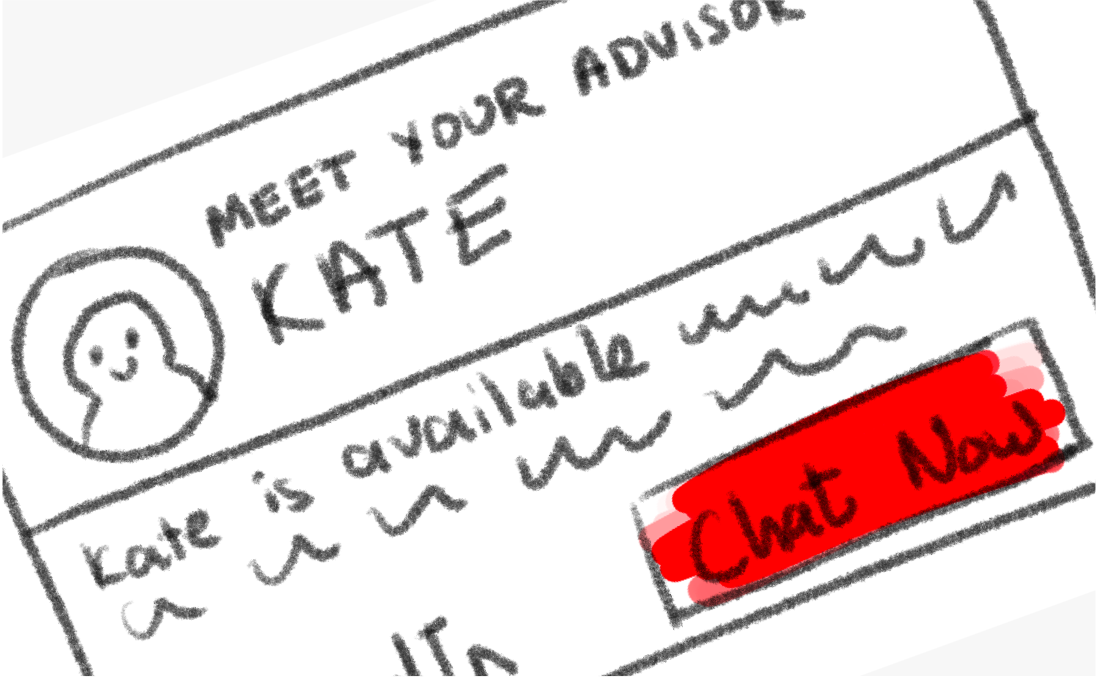 MEET YOUR ADVISOR
KATE
Kate is available
Chat Now